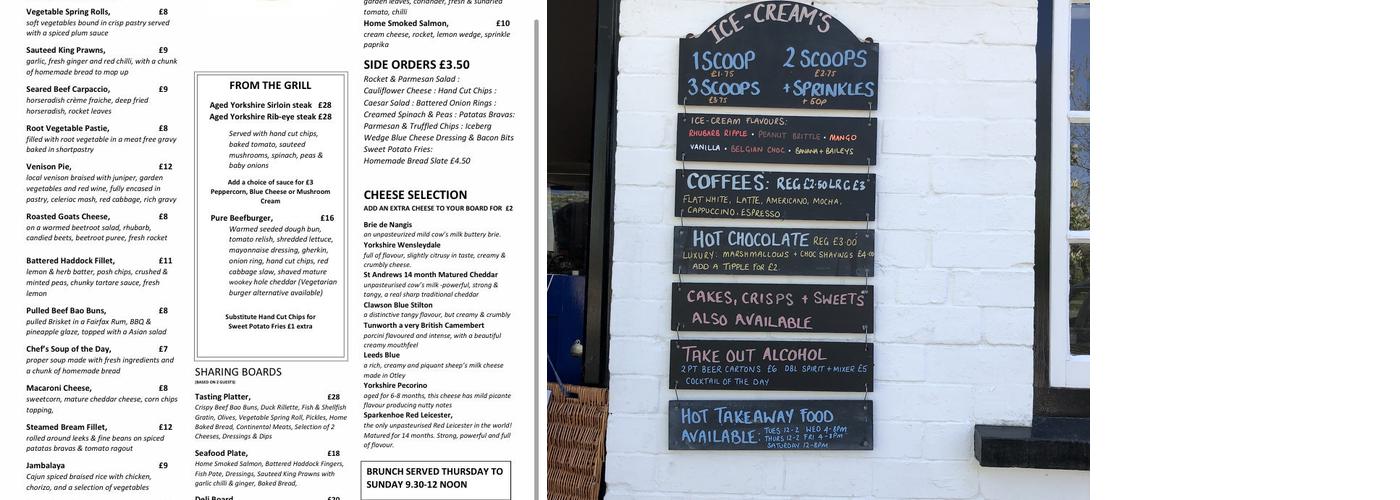 Vegetable Spring Rolls, £8
soft vegetables bound in crisp pastry served
with a spiced plum sauce
Sauteed King Prawns, £9
garlic, fresh ginger and red chilli, with a chunk
of homemade bread to mop up
Seared Beef Carpaccio, £9
horseradish crème fraiche, deep fried
horseradish, rocket leaves
Root Vegetable Pastie, £8
filled with root vegetable in a meat free gravy
baked in shortpastry
Venison Pie, £12
local venison braised with juniper, garden
vegetables and red wine, fully encased in
pastry, celeriac mash, red cabbage, rich gravy
Roasted Goats Cheese, £8
on a warmed beetroot salad, rhubarb,
candied beets, beetroot puree, fresh rocket
Battered Haddock Fillet, £11
lemon & herb batter, posh chips, crushed &
minted peas, chunky tartare sauce, fresh
lemon
Pulled Beef Bao Buns, £8
pulled Brisket in a Fairfax Rum, BBQ &
pineapple glaze, topped with a Asian salad
Chef's Soup of the Day, £7
proper soup made with fresh ingredients and
a chunk of homemade bread
Macaroni Cheese, £8
sweetcorn, mature cheddar cheese, corn chips
topping,
Steamed Bream Fillet, £12
rolled around leeks & fine beans on spiced
patatas bravas & tomato ragout
Jambalaya £9
Cajun spiced braised rice with chicken,
chorizo, and a selection of vegetables
FROM THE GRILL
Aged Yorkshire Sirloin steak £28
Aged Yorkshire Rib-eye steak £28
Served with hand cut chips,
baked tomato, sauteed
mushrooms, spinach, peas &
baby onions
Add a choice of sauce for £3
Peppercorn, Blue Cheese or Mushroom
Cream
Pure Beefburger, £16
Warmed seeded dough bun,
tomato relish, shredded lettuce,
mayonnaise dressing, gherkin,
onion ring, hand cut chips, red
cabbage slaw, shaved mature
wookey hole cheddar (Vegetarian
burger alternative available)
Substitute Hand Cut Chips for
Sweet Potato Fries £1 extra
SHARING BOARDS
(BASED ON 2 GUESTS)
Tasting Platter, £28
Crispy Beef Bao Buns, Duck Rillette, Fish & Shellfish
Gratin, Olives, Vegetable Spring Roll, Pickles, Home
Baked Bread, Continental Meats, Selection of 2
Cheeses, Dressings & Dips
Seafood Plate, £18
Home Smoked Salmon, Battered Haddock Fingers,
Fish Pate, Dressings, Sauteed King Prawns with
garlic chilli & ginger, Baked Bread,
Deli Board £20
garden leaves, coriander, fresh & sundried
tomato, chilli
Home Smoked Salmon, £10
cream cheese, rocket, lemon wedge, sprinkle
paprika
SIDE ORDERS £3.50
Rocket & Parmesan Salad :
Cauliflower Cheese : Hand Cut Chips :
Caesar Salad : Battered Onion Rings :
Creamed Spinach & Peas : Patatas Bravas:
Parmesan & Truffled Chips : Iceberg
Wedge Blue Cheese Dressing & Bacon Bits
Sweet Potato Fries:
Homemade Bread Slate £4.50
CHEESE SELECTION
ADD AN EXTRA CHEESE TO YOUR BOARD FOR £2
Brie de Nangis
an unpasteurized mild cow's milk buttery brie.
Yorkshire Wensleydale
full of flavour, slightly citrusy in taste, creamy &
crumbly cheese.
St Andrews 14 month Matured Cheddar
unpasteurised cow's milk -powerful, strong &
tangy, a real sharp traditional cheddar
Clawson Blue Stilton
a distinctive tangy flavour, but creamy & crumbly
Tunworth a very British Camembert
porcini flavoured and intense, with a beautiful
creamy mouthfeel
Leeds Blue
a rich, creamy and piquant sheep's milk cheese
made in Otley
Yorkshire Pecorino
aged for 6-8 months, this cheese has mild picante
flavour producing nutty notes
Sparkenhoe Red Leicester,
the only unpasteurised Red Leicester in the world!
Matured for 14 months. Strong, powerful and full
of flavour.
BRUNCH SERVED THURSDAY TO
SUNDAY 9.30-12 NOON
ICE-CREAM'S
1 SCOOP 2 SCOOPS
£1.75 £2.75
3 SCOOPS + SPRINKLES
£3.75 + 50p
ICE-CREAM FLAVOURS:
RHUBARB RIPPLE • PEANUT BRITTLE • MANGO
VANILLA • BELGIAN CHOC • BANANA + BAILEYS
COFFEES: REG £2.50 LRG £3
FLAT WHITE, LATTE, AMERICANO, MOCHA,
CAPPUCCINO, ESPRESSO
HOT CHOCOLATE REG £3.00
LUXURY: MARSHMALLOWS + CHOC SHAVINGS £4.00
ADD A TIPPLE FOR £2
CAKES, CRISPS + SWEETS
ALSO AVAILABLE
TAKE OUT ALCOHOL
2 PT BEER CARTONS £6 DBL SPIRIT + MIXER £5
COCKTAIL OF THE DAY
HOT TAKEAWAY FOOD
AVAILABLE: TUES 12-2 WED 4-8PM
THURS 12-2 FRI 4-8PM
SATURDAY 12-8PM